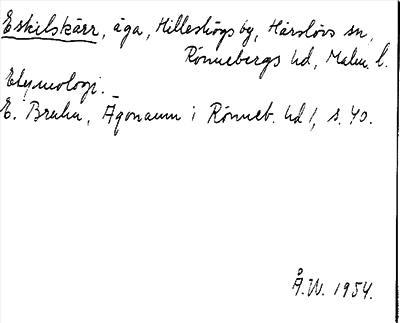 Eskilskärr, äga, Hilleshögs by, Härslövs sn,
Rönnebergs hd, Malm. l.
Etymologi.
E. Bruhn, Ägonamn i Rönneb. hd 1, s. 40.
Å.W. 1954.